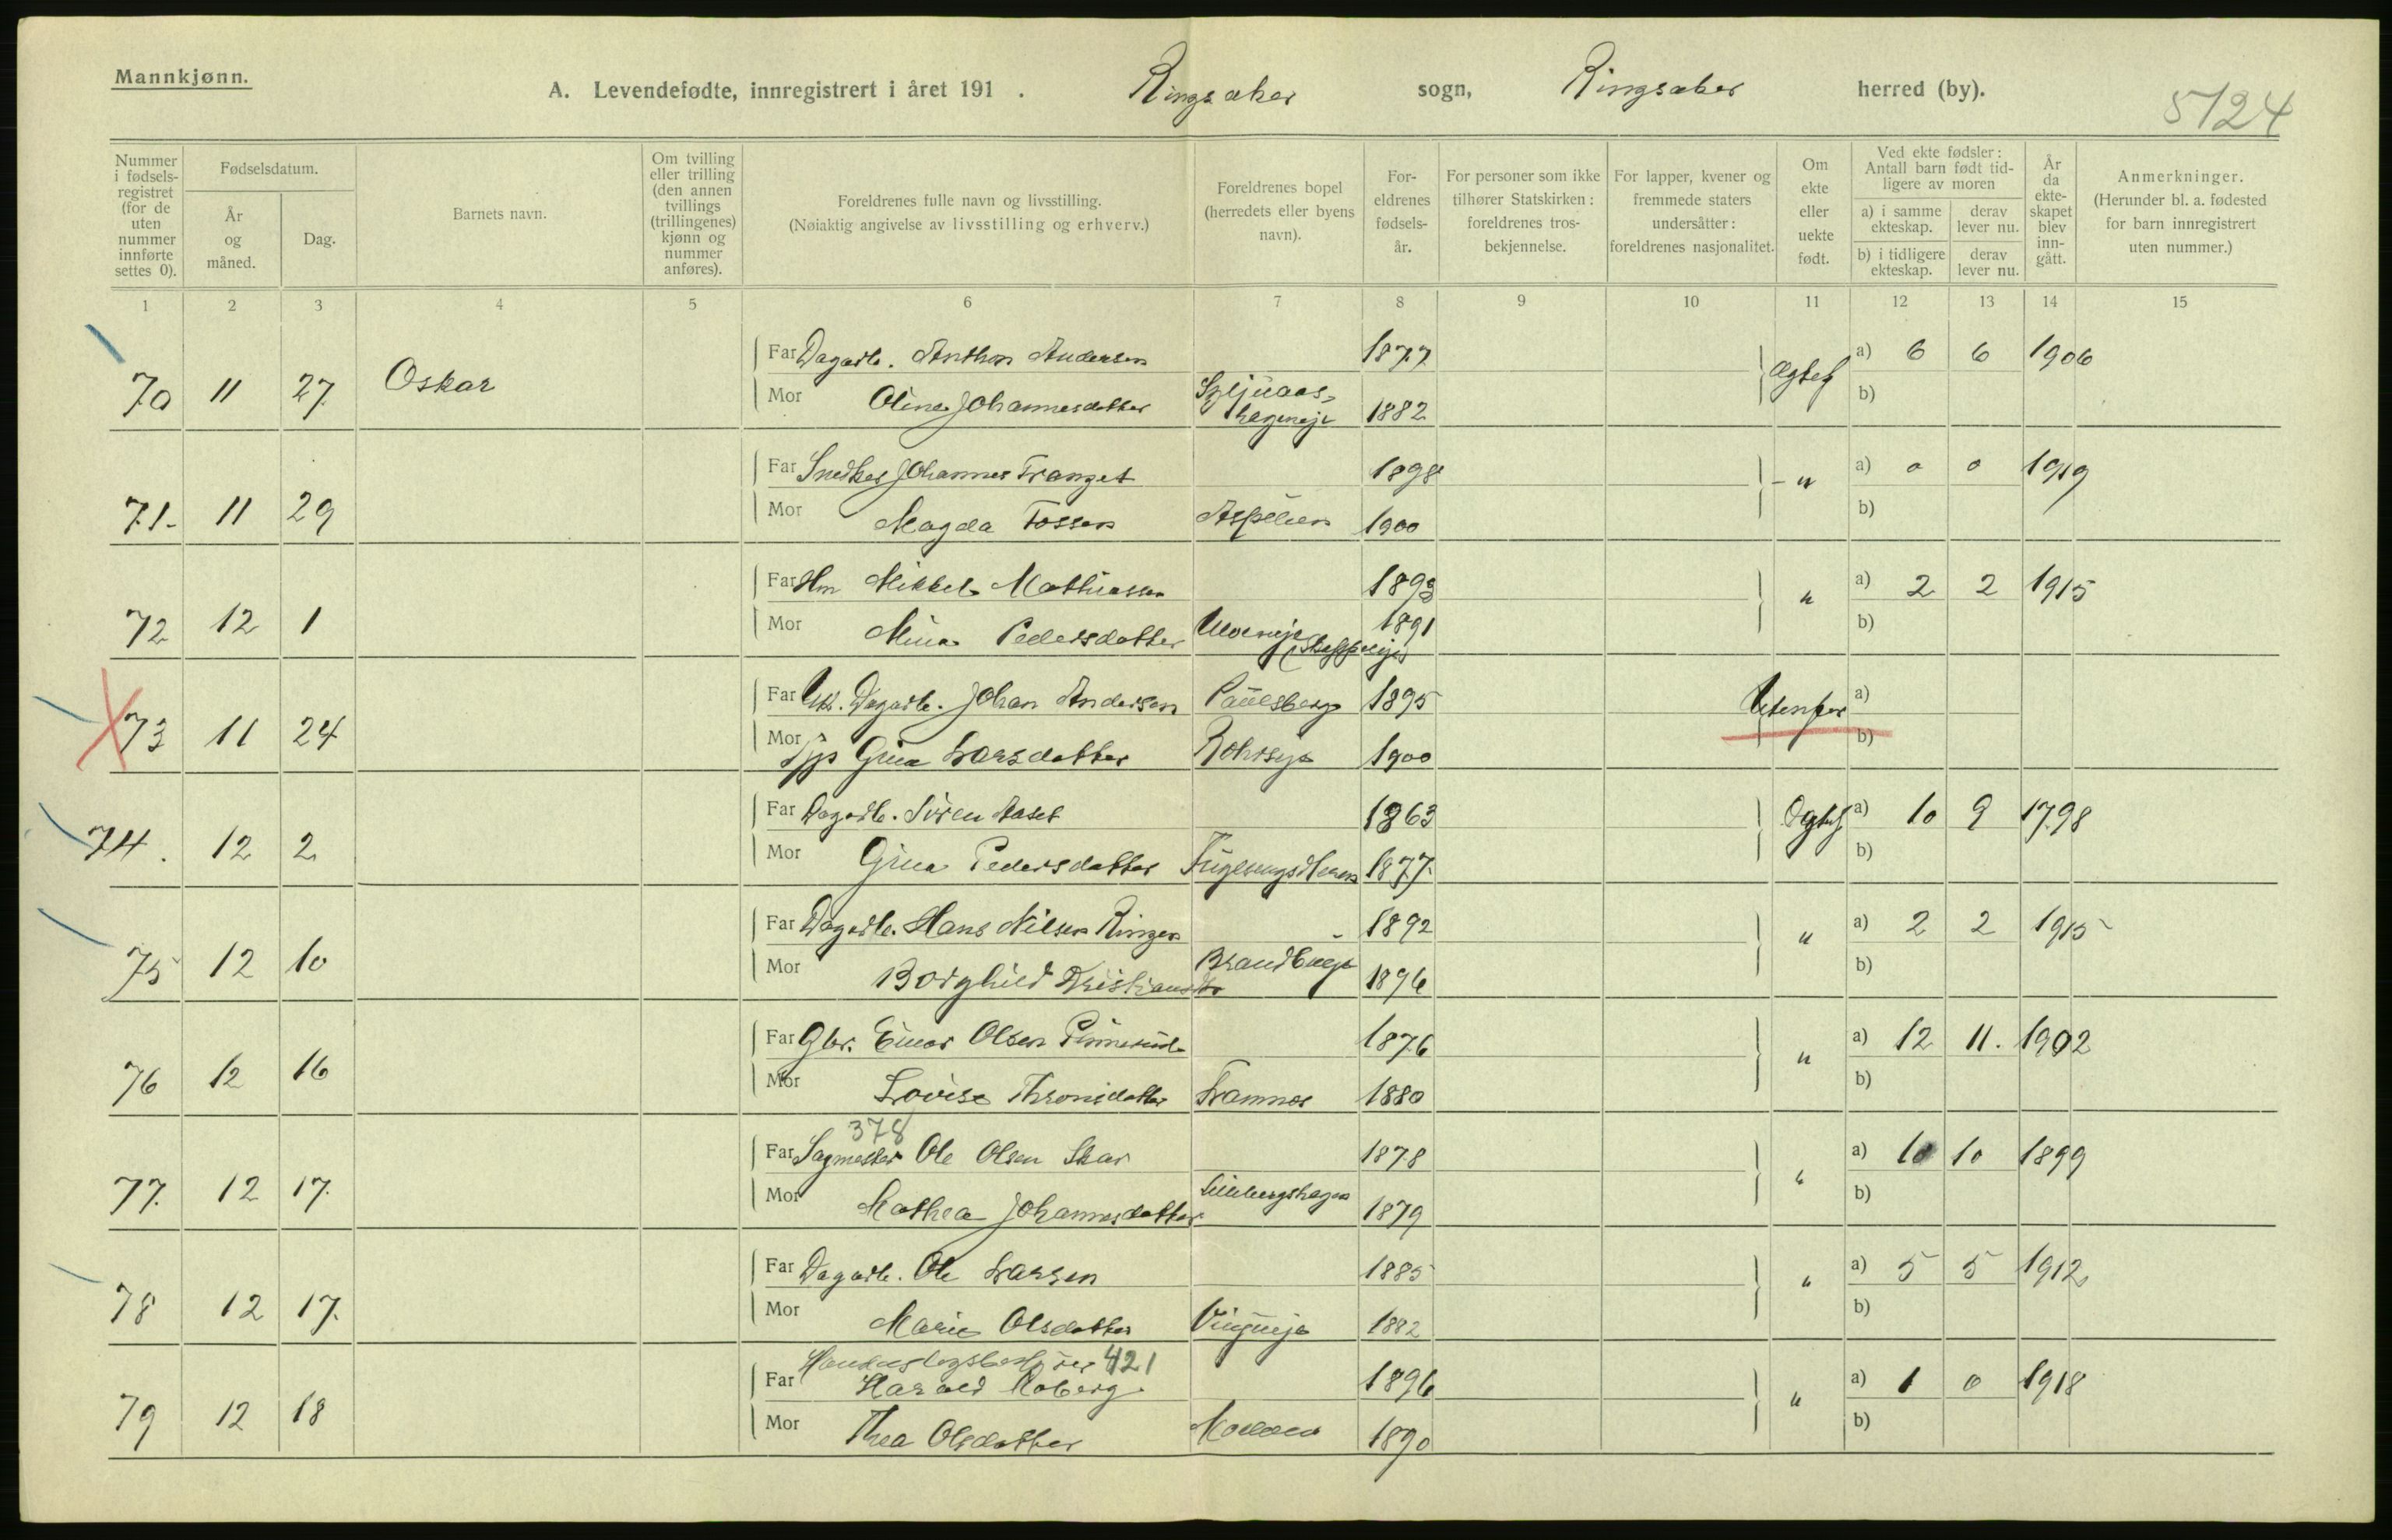 Mannkjønn.
A. Levendefødte, innregistrert i året 191 . Ringsaker sogn, Ringsaker herred (by).
5124
Nummer i fødsels-registret (for de uten nummer innførte settes 0).
Fødselsdatum.
År og måned.
Dag.
Barnets navn.
Om tvilling eller trilling (den annen tvillings (trillingenes) kjønn og nummer anføres).
Foreldrenes fulle navn og livsstilling.
(Nøiaktig angivelse av livsstilling og erhverv.)
Foreldrenes bopel (herredets eller byens navn).
For-eldrenes fødsels-år.
For personer som ikke tilhører Statskirken: foreldrenes tros-bekjennelse.
For lapper, kvener og fremmede staters undersåtter: foreldrenes nasjonalitet.
Om ekte eller uekte født.
Ved ekte fødsler: Antall barn født tid-ligere av moren
a) i samme ekteskap.
derav lever nu.
b) i tidligere ekteskap.
derav lever nu.
År da ekte-skapet blev inn-gått.
Anmerkninger.
(Herunder bl. a. fødested for barn innregistrert uten nummer.)
1 2 3 4 5 6 7 8 9 10 11 12 13 14 15
Far Dagarb. Anthon Andersen 1877 a) 6 6 1906
70 11 27 Oskar Mor Oline Johannesdatter 1882 Ægtef b)
Far Snedker Johannes Franzet 1898 - " a) 0 0 1919
71- 11 29 Mor Magda Fossen Aspelien 1900 b)
Far Hm Mikkel Mathiassen 1893 " a) 2 2 1915
72 12 1 Mor Mina Pedersdatter 1891 b)
Far Uk. Dagarb. Johan Andersen Paulsberg 1895 Utenfor a)
73 11 24 Mor Pge Gina Larsdatter 1900 b)
Far Dagarb. Søren Aaset 1863 Ægtef a) 10 9 1798
74. 12 2 Mor Gina Pedersdatter 1877 b)
Far Dagarb. Hans Nilsen Ringen 1892 " a) 2 2 1915
75 12 10 Mor Borghild Kristiansdtr 1896 b)
Far Gbr. Einar Olsen 1876 " a) 12 11. 1902
76 12 16 Mor Lovise Thronsdatter Framnes 1880 b)
378
Far Sagmester Ole Olsen Skar 1878 " a) 10 10 1899
77. 12 17. Mor Mathea Johannesdatter 1879 b)
Far Dagarb. Ole Larsen 1885 " a) 5 5 1912
78 12 17. Mor Marie Olsdatter 1882 b)
Handelslagsbestyrer 421
Far Harald Moberg 1896 " a) 1 0 1918
79 12 18 Mor Thea Olsdatter Moelven 1890 b)